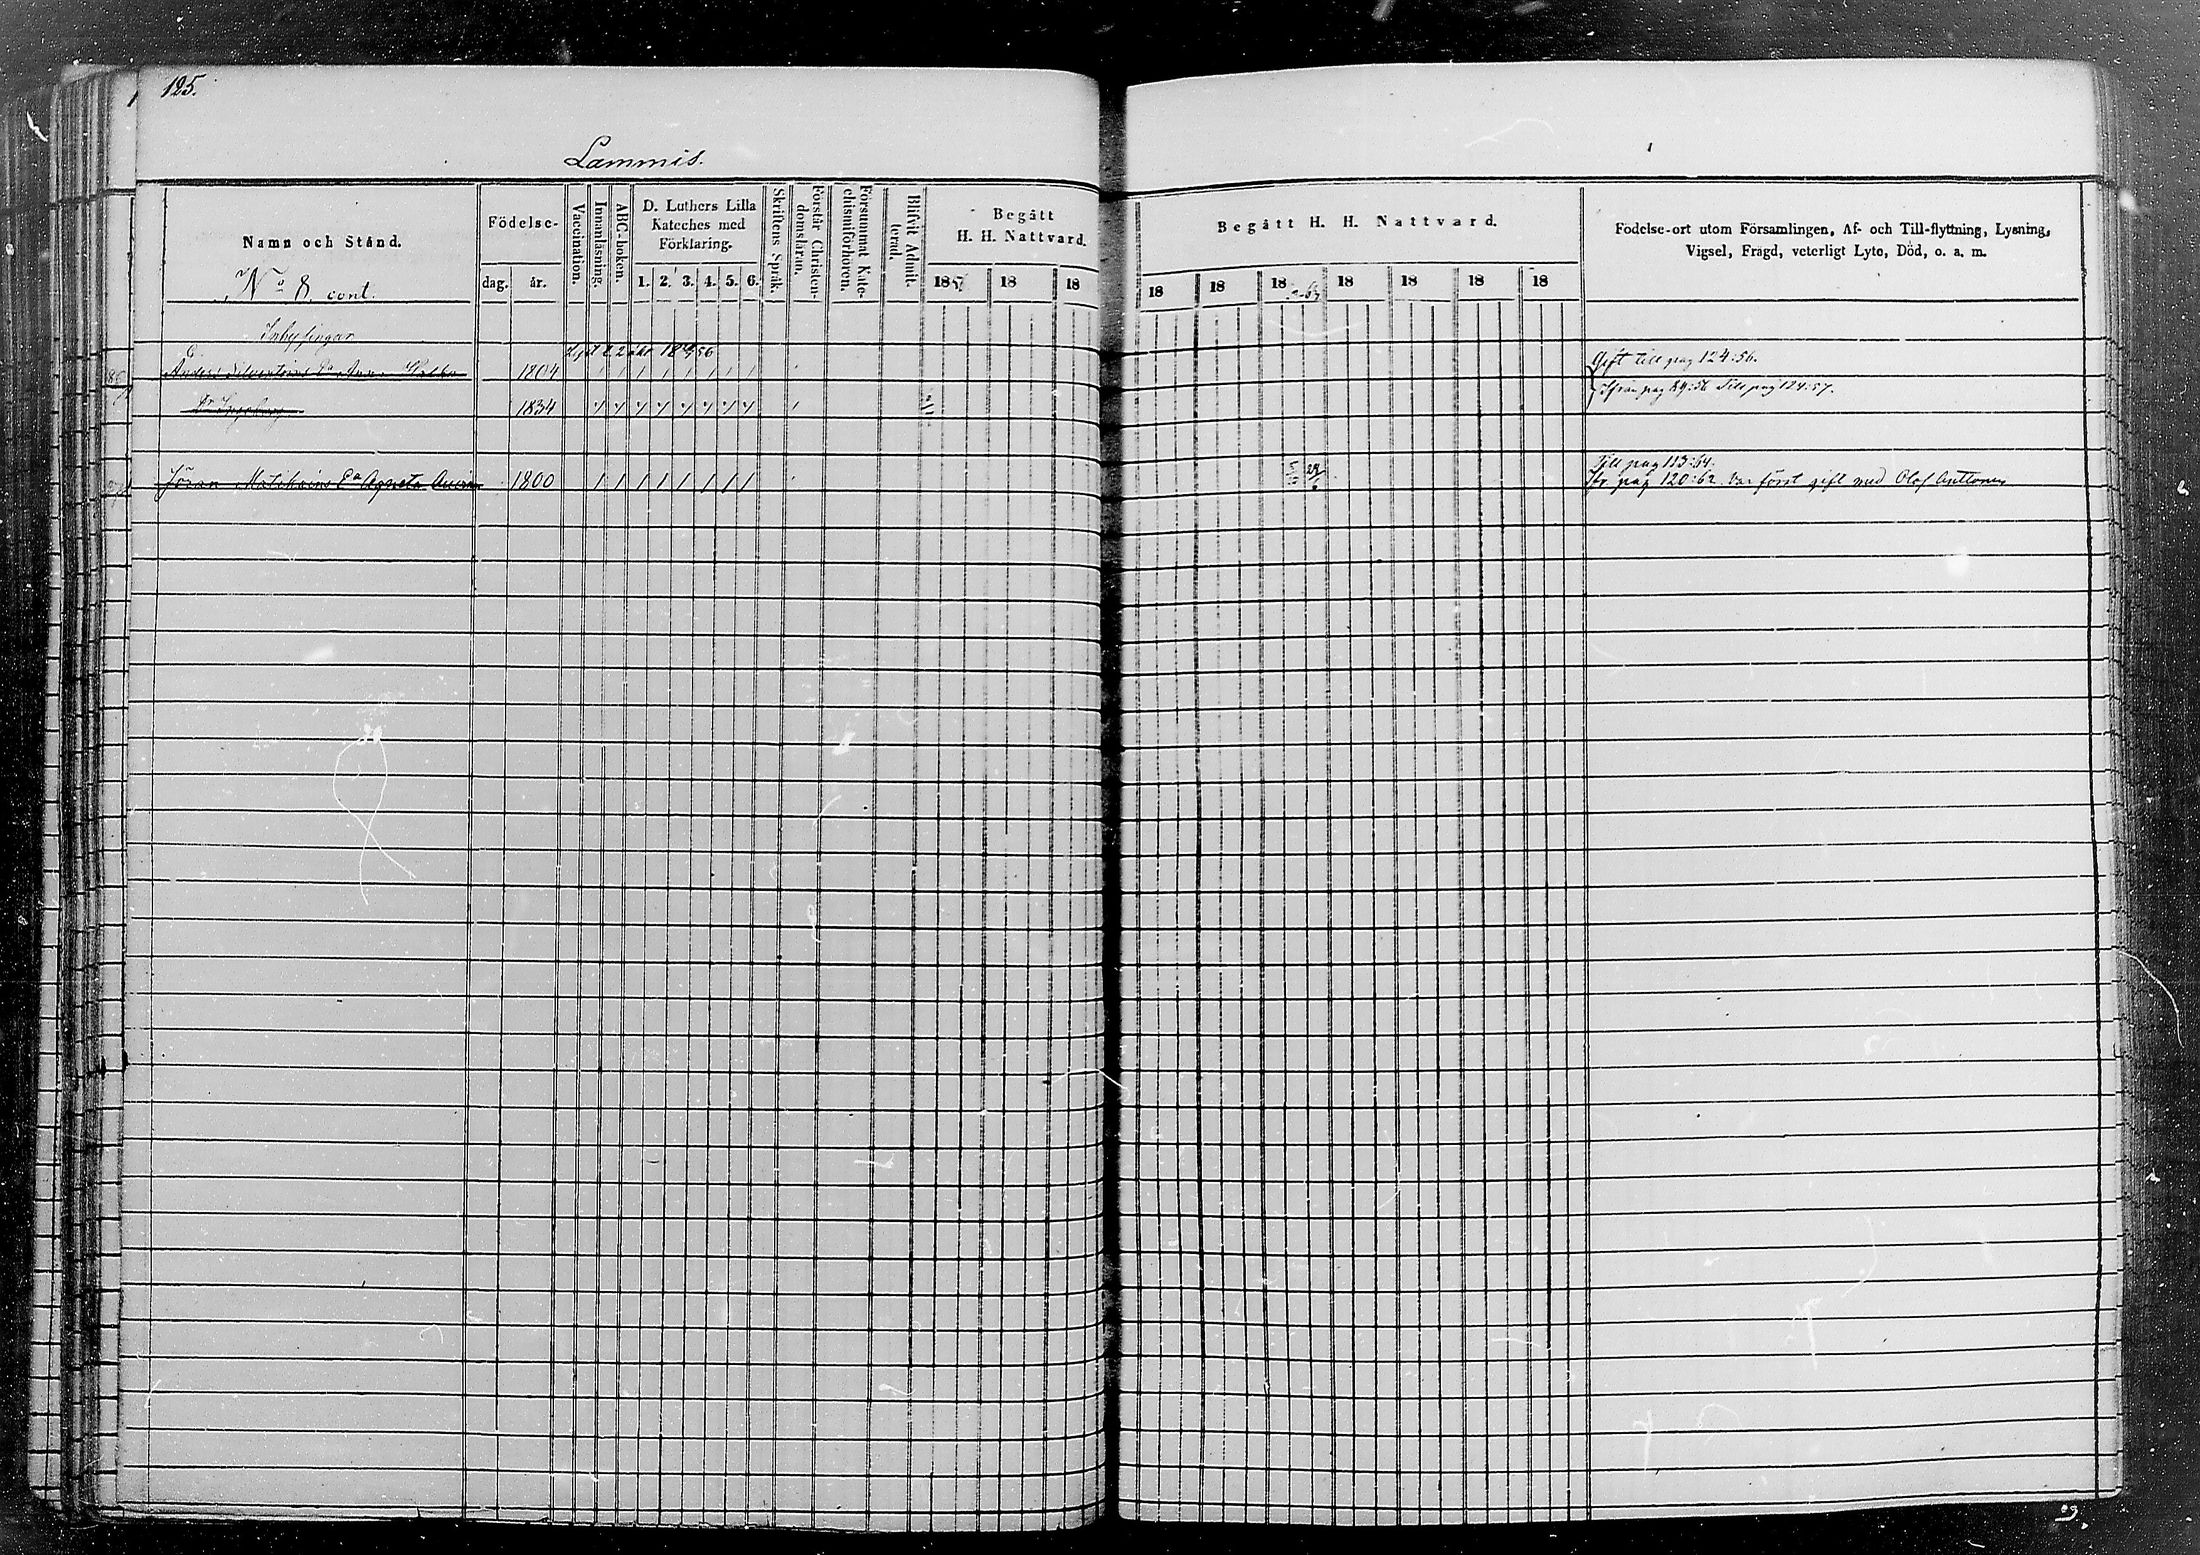 125.
Lammis.
Namn och Stånd.
Födelse-
dag.
år.
Vaccination.
Innanläsning.
ABC-boken.
D. Luthers Lilla
Kateches med
Förklaring.
1. 2. 3. 4. 5. 6.
Skriftens Språk.
Förstår Christen-
domsläran.
Försummat Kate-
chismiförhören.
Blifvit Admit-
terad.
Begått
H. H. Nattvard.
18 18 18
Begått H. H. Nattvard.
18 18 18 18 18 18 18
Födelse-ort utom Församlingen, Af- och Till-flyttning, Lysning,
Vigsel, Frägd, veterligt Lyte, Död, o. a. m.
No 8. cont.
Inhysingar
1804
Gift till pag 124:56.
1834
ifrån pag 89:56 Till pag 124:57.
Till pag 113:64.
Jöran Matikains Ea Agneta 1800
fr. pag 120:62. Var först gift med Olof Anttonen